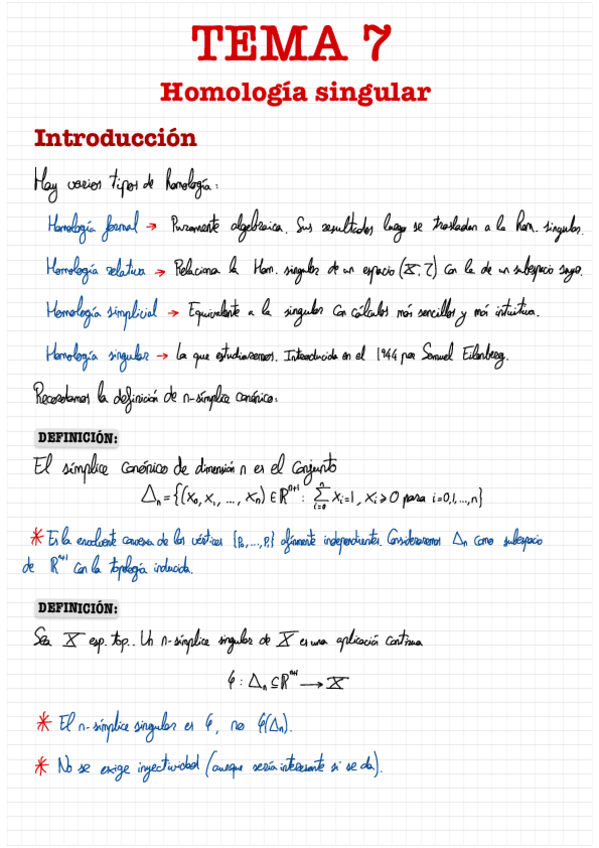 TEMA 7
Homología singular
Introducción
Hay varios tipos de homología:
Homología formal → Puramente algebraica. Sus resultados luego se trasladan a la hom. singular.
Homología relativa → Relaciona la Hom. singular de un espacio (X, T) con la de un subespacio suyo.
Homología simplicial → Equivalente a la singular con cálculos más sencillos y más intuitiva.
Homología singular → La que estudiaremos. Introducida en el 1944 por Samuel Eilenberg.
Recordamos la definición de n-símplice canónico:
DEFINICIÓN:
El símplice canónico de dimensión n es el conjunto
Δₙ = {(x₀, x₁, ..., xₙ) ∈ ℝⁿ⁺¹ : Σᵢ₌₀ⁿ xᵢ = 1, xᵢ ≥ 0 para i=0,1,...,n}
* Es la envolvente convexa de los vértices {P₀,...,Pᵢ} afínmente independientes. Consideraremos Δₙ como subespacio
de ℝⁿ⁺¹ con la topología inducida.
DEFINICIÓN:
Sea X esp. top.. Un n-símplice singular de X es una aplicación continua
φ : Δₙ ⊆ ℝⁿ⁺¹ → X
* El n-símplice singular es φ, no φ(Δₙ).
* No se exige inyectividad (aunque sería interesante si se da).